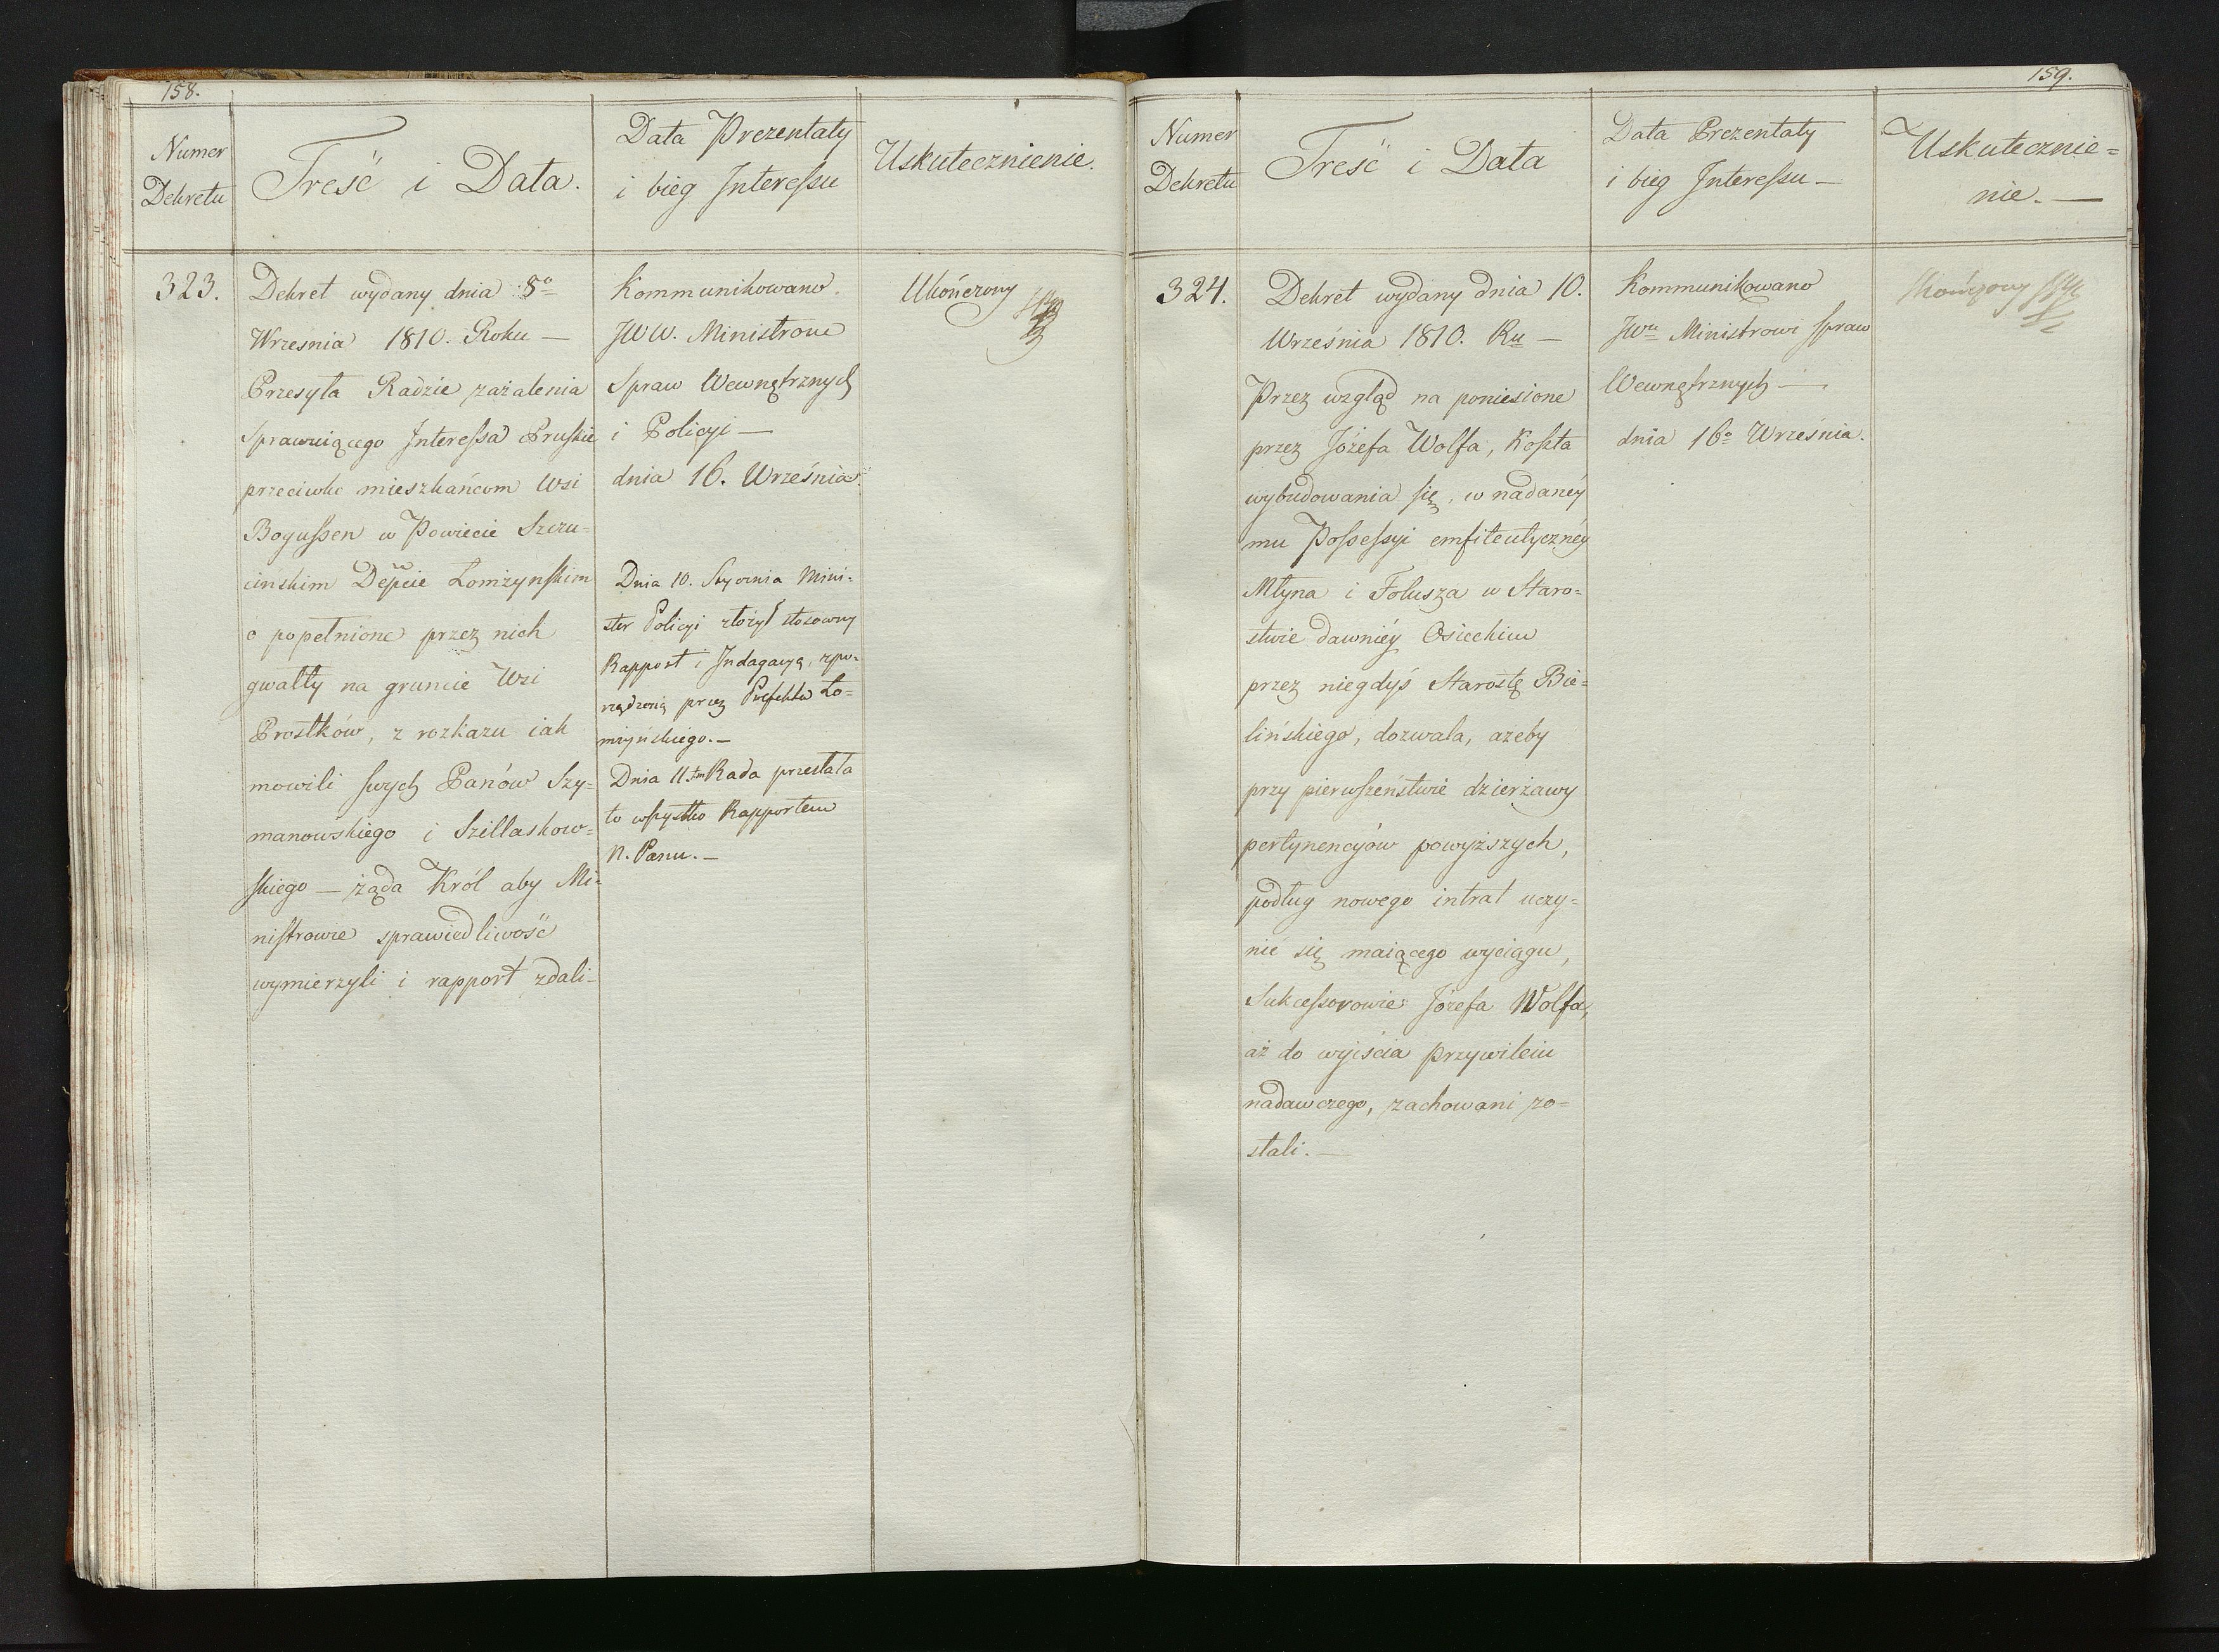 158.
Numer
Dekretu
Treść i Data.
Data Prezentaty
i bieg Interessu
Uskutecznienie.
323.
Dekret wydany dnia 8º
Wrzesnia 1810. Roku —
Przesyła Radzie zażalenia
Sprawuiącego Interessa Pruskie
przeciwko mieszkańcom Wsi
Bogussen w Powiecie Szczu-
cińskim Depcie Łomżynskim
o popełnione przez nich
gwałty na gruncie Wsi
Prostków, z rozkazu iak
mowili swych Panów Szy-
manowskiego i Szillaskow-
skiego — żąda Król aby Mi-
nistrowie sprawiedliwość
wymierzyli i rapport zdali -
Kommunikowano
JWW. Ministrom
Spraw Wewnętrznych
i Policyi —
dnia 16. Września.
Dnia 10. Stycznia Mini-
ster Policyi złożył stosowny
Rapport i Indagacyą, spo-
rządzoną przez Prefekta Ło-
mżyńskiego. —
Dnia 11. tm Rada przesłała
to wszystko Rapportem
N. Panu. —
Ukończony
159.
Numer
Dekretu
Treść i Data
Data Prezentaty
i bieg Interessu —
Uskutecznie=
nie. —
324.
Dekret wydany dnia 10.
Września 1810. Ru —
Przez wzgląd na poniesione
przez Józefa Wolfa, Koszta
wybudowania się, w nadanéy
mu Possessyi emfiteutycznéy
Młyna i Folusza w Staro=
stwie dawniéy Osieckim
przez niegdyś Starostę Bie=
lińskiego, dozwala, ażeby
przy pierwszeństwie dzierżawy
pertynencyów powyższych,
podług nowego intrat uczy=
nić się maiącego wyciągu,
Sukcessorowie Józefa Wolfa,
aż do wyiścia przywileiu
nadawczego, zachowani zo=
stali. —
Kommunikowano
JWu Ministrowi Spraw
Wewnętrznych —
dnia 16º Września.
Skończony